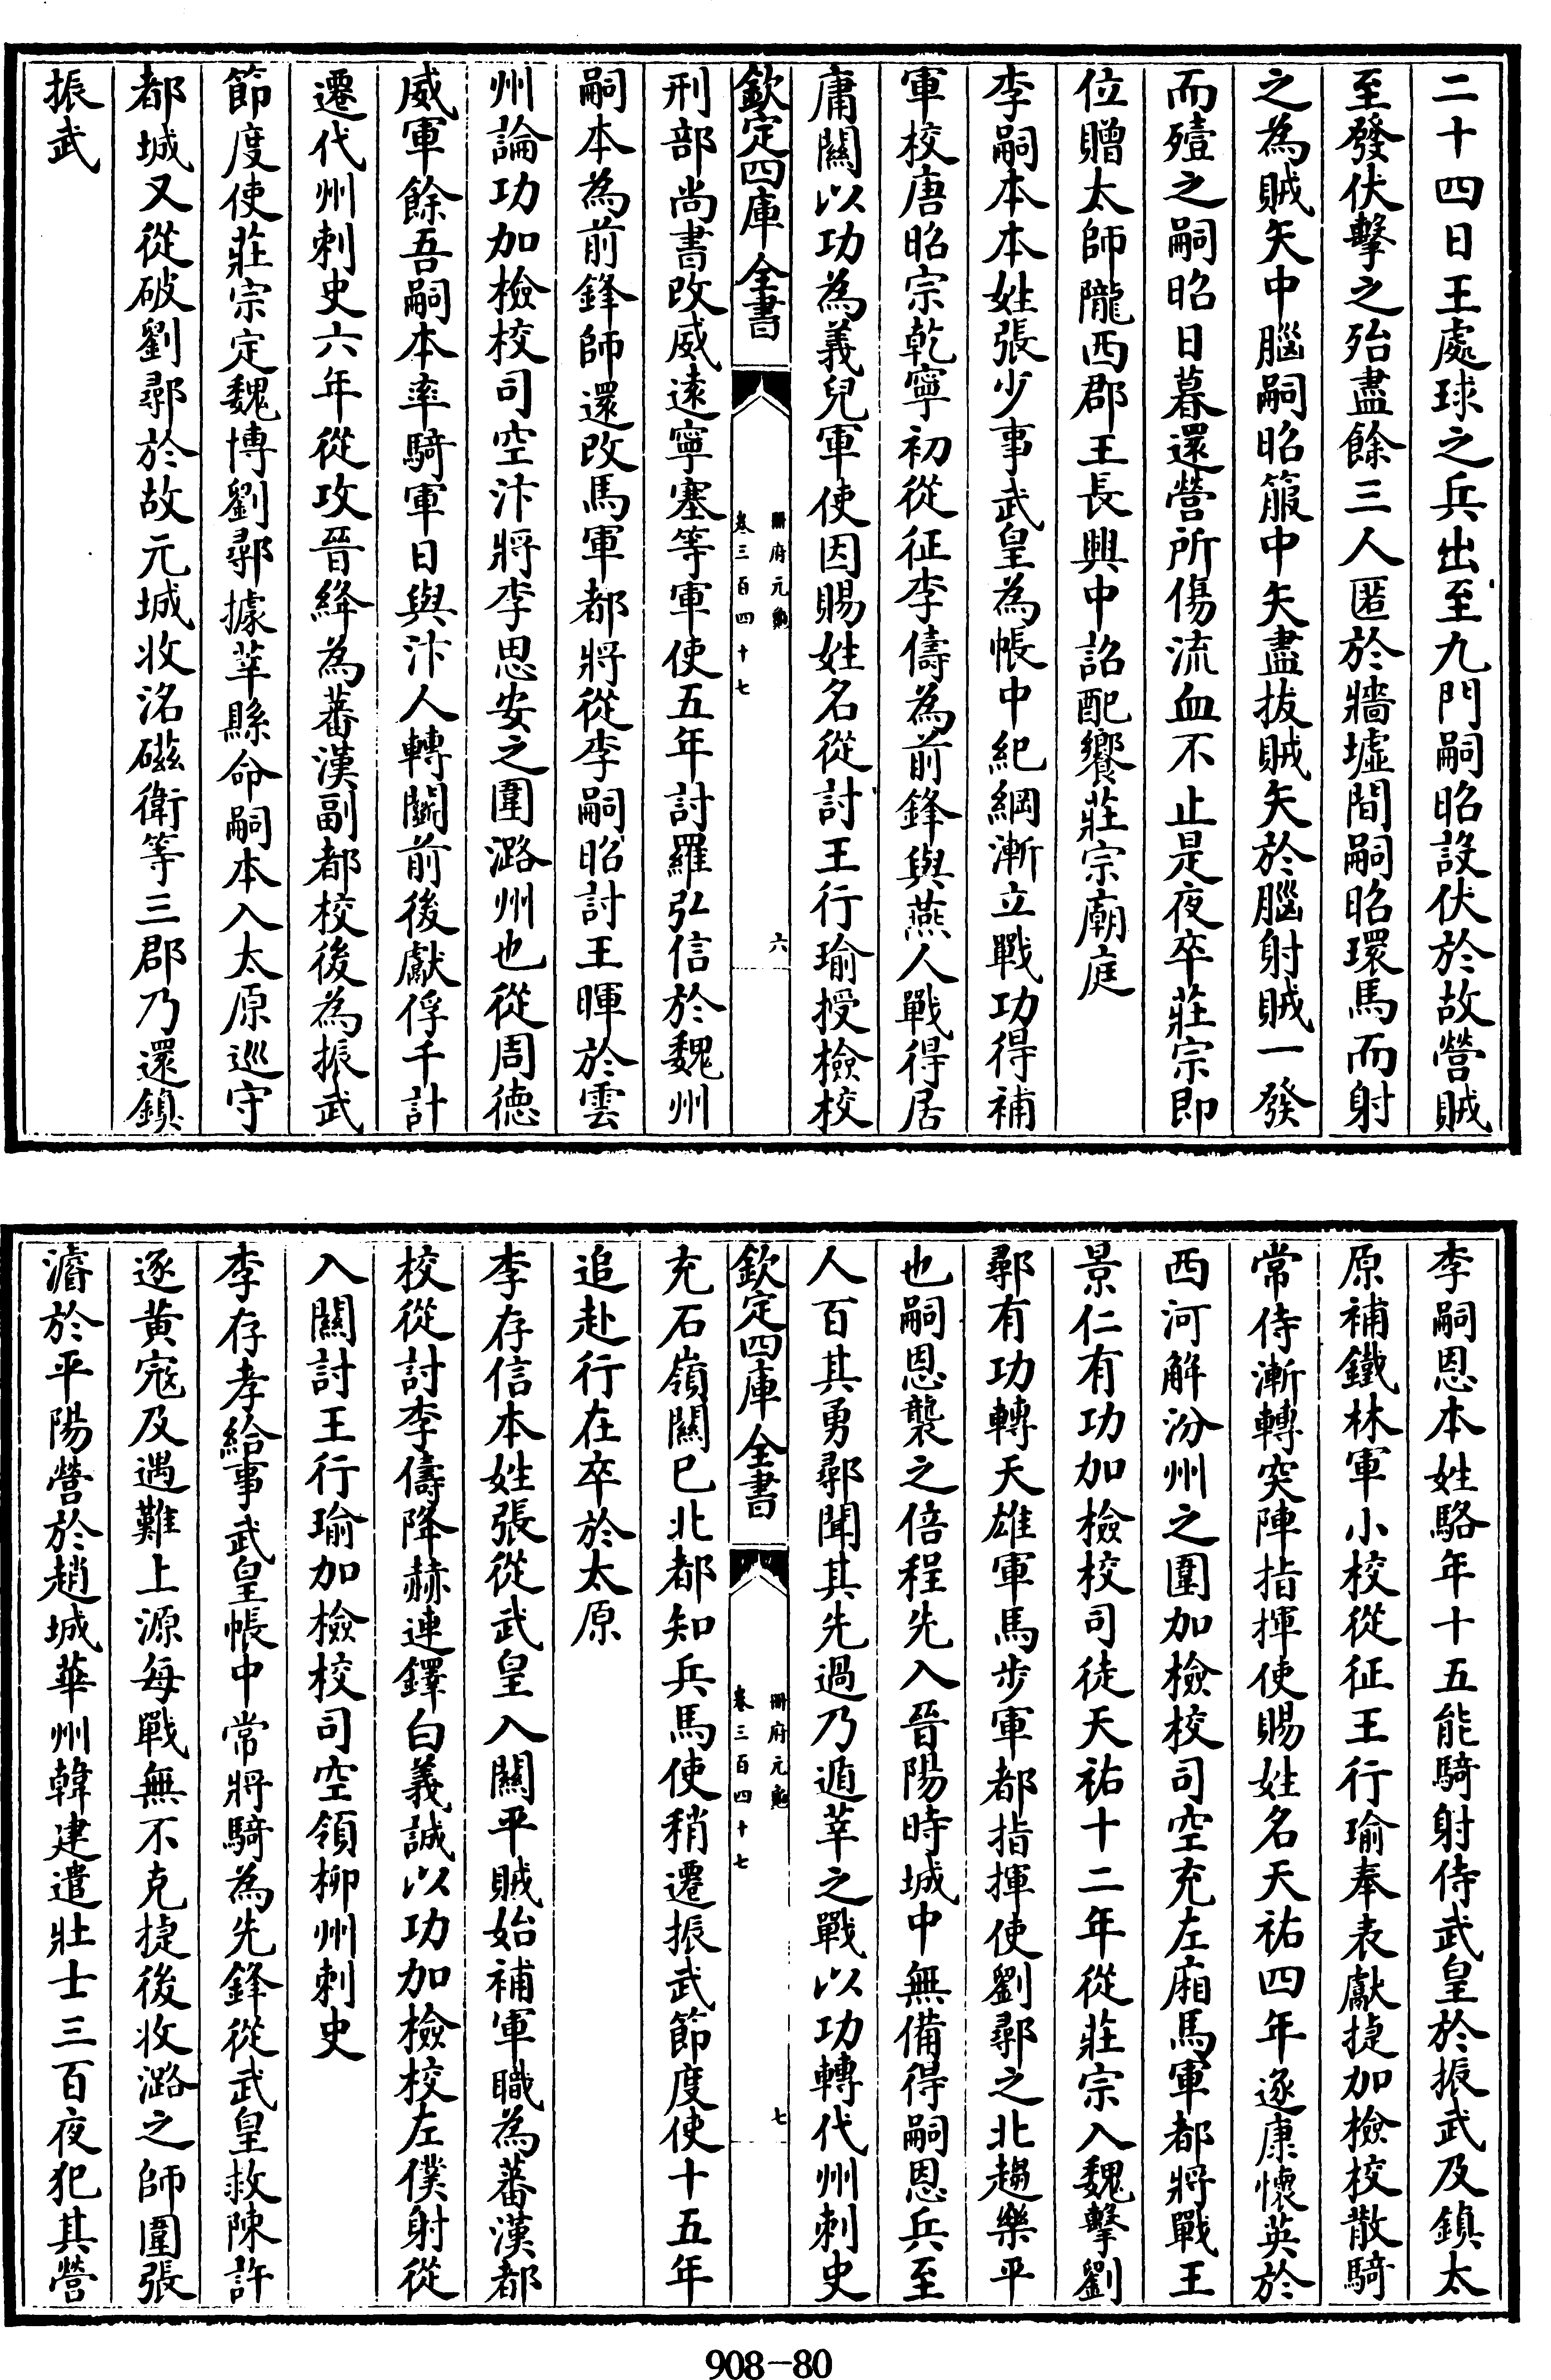 二十四日王處球之兵出至九門嗣昭設伏於故營賊
至發伏擊之殆盡餘三人匿於牆墟間嗣昭環馬而射
之為賊矢中腦嗣昭箙中矢盡拔賊矢於腦射賊一發
而殪之嗣昭日暮還營所傷流血不止是夜卒莊宗即
位贈太師隴西郡王長興中詔配饗莊宗廟庭
李嗣本本姓張少事武皇為帳中紀綱漸立戰功得補
軍校唐昭宗乾寧初從征李儔為前鋒與燕人戰得居
庸關以功為義兒軍使因賜姓名從討王行瑜授檢校
欽定四庫全書
冊府元龜
卷三百四十七
六
刑部尚書改威遠寧塞等軍使五年討羅弘信於魏州
嗣本為前鋒師還改馬軍都將從李嗣昭討王暉於雲
州論功加檢校司空汴將李思安之圍潞州也從周德
威軍餘吾嗣本率騎軍日與汴人轉鬭前後獻俘千計
遷代州刺史六年從攻晉絳為蕃漢副都校後為振武
節度使莊宗定魏博劉鄩據莘縣命嗣本入太原巡守
都城又從破劉鄩於故元城收洺磁衛等三郡乃還鎮
振武
李嗣恩本姓駱年十五能騎射侍武皇於振武及鎮太
原補鐵林軍小校從征王行瑜奉表獻捷加檢校散騎
常侍漸轉突陣指揮使賜姓名天祐四年逐康懷英於
西河解汾州之圍加檢校司空充左廂馬軍都將戰王
景仁有功加檢校司徒天祐十二年從莊宗入魏擊劉
鄩有功轉天雄軍馬步軍都指揮使劉鄩之北趨樂平
也嗣恩襲之倍程先入晉陽時城中無備得嗣恩兵至
人百其勇鄩聞其先過乃遁莘之戰以功轉代州刺史
欽定四庫全書
冊府元龜
卷三百四十七
七
充石嶺關已北都知兵馬使稍遷振武節度使十五年
追赴行在卒於太原
李存信本姓張從武皇入關平賊始補軍職為蕃漢都
校從討李儔降赫連鐸白義誠以功加檢校左僕射從
入關討王行瑜加檢校司空領柳州刺史
李存孝給事武皇帳中常將騎為先鋒從武皇救陳許
逐黃寇及遇難上源每戰無不克捷後收潞之師圍張
濬於平陽營於趙城華州韓建遣壯士三百夜犯其營
908-80